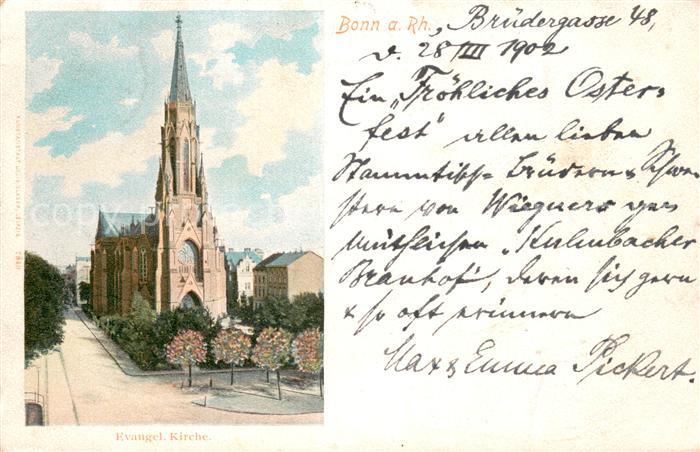 Bonn a. Rh., Brüdergasse 48,
d. 28/III 1902
Ein „Fröhliches Oster-
fest" allen lieben
Stammtisch-Brüdern & Schwe-
stern von Wiegners ge-
müthlichen „Kulmbacher
Brauhof", deren sich gern
& so oft erinnern
Max & Emma Pickert.
Evangel. Kirche.